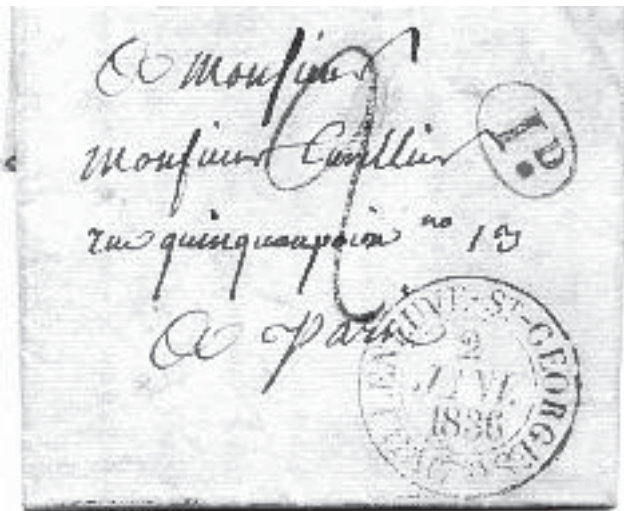 A Monsieur
Monsieur Cuvillier
rue quinquanpoix no 13
A Paris
2
1D
VILLENEUVE-ST-GEORGES
2
JANV.
1836